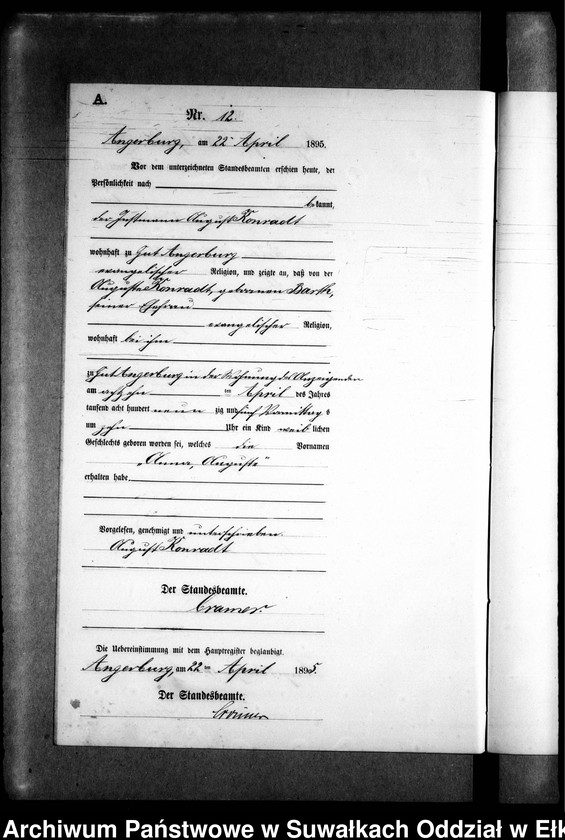 A.
Nr. 12.
Angerburg, am 22 ten April 1895.
Vor dem unterzeichneten Standesbeamten erschien heute, der
Persönlichkeit nach
bekannt,
der Instmann August Konradt
wohnhaft zu Gut Angerburg
evangelischer Religion, und zeigte an, daß von der
Auguste Konradt, geborenen Barth,
seiner Ehefrau
evangelischer Religion,
wohnhaft bei ihm
zu Gut Angerburg in der Wohnung des Anzeigenden
am achtzehn ten April des Jahres
tausend acht hundert neun zig und fünf Vormittags
um zehn Uhr ein Kind weib lichen
Geschlechts geboren worden sei, welches die Vornamen
„Anna, Auguste"
erhalten habe
Vorgelesen, genehmigt und unterschrieben.
August Konradt
Der Standesbeamte.
Cramer.
Die Uebereinstimmung mit dem Hauptregister beglaubigt.
Angerburg, am 22 ten April 1895.
Der Standesbeamte.
Cramer
Archiwum Państwowe w Suwałkach Oddział w Ełk